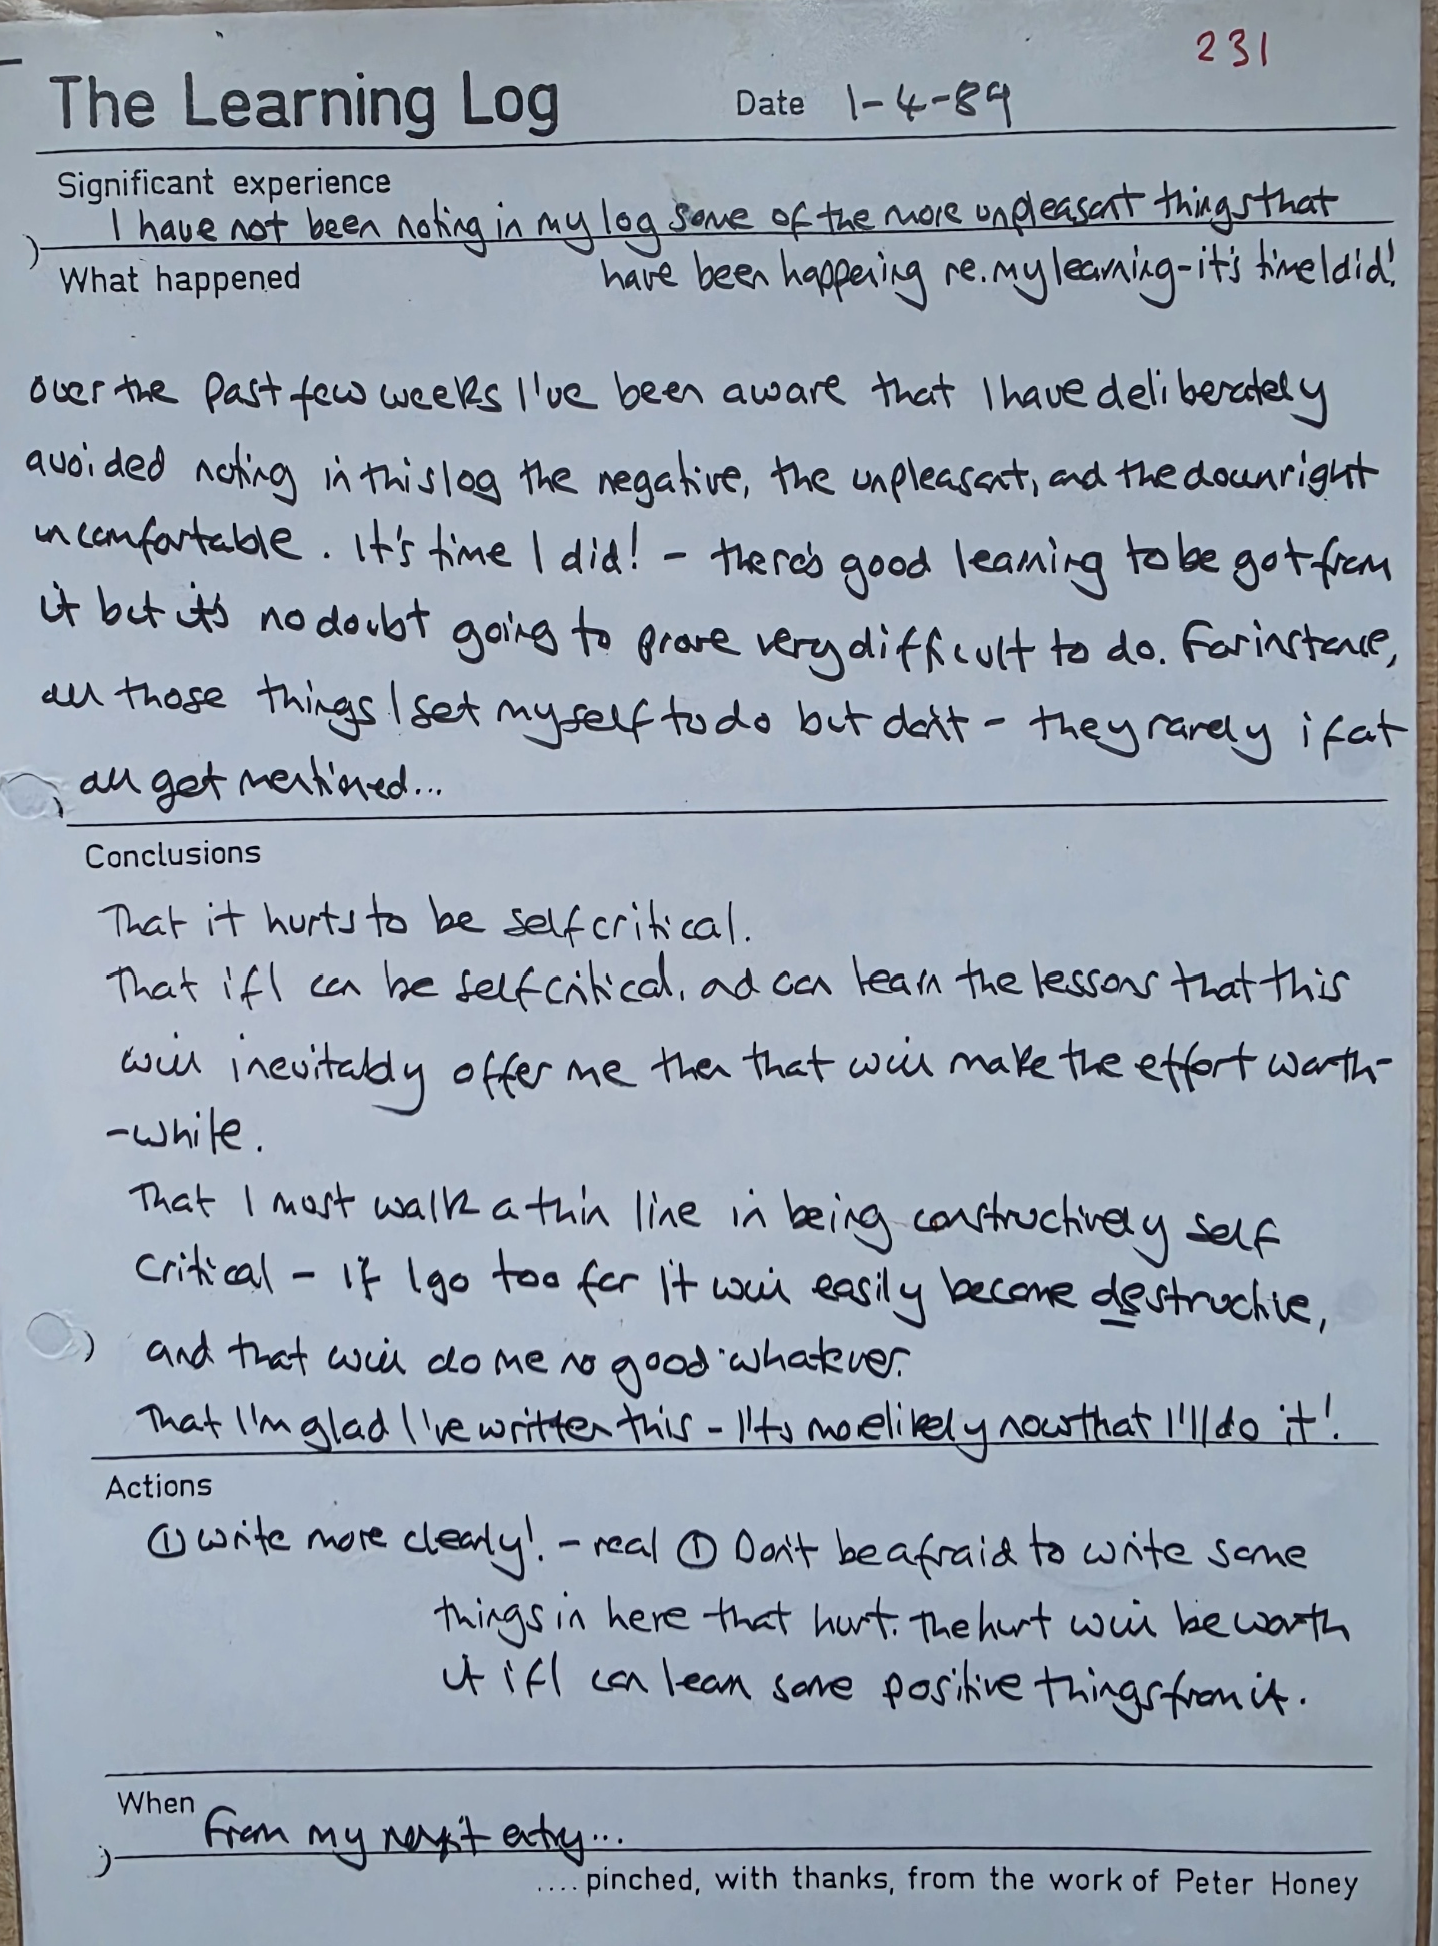 231
The Learning Log
Date 1-4-89
Significant experience
I have not been noting in my log some of the more unpleasant things that
What happened have been happening re. my learning - it's time I did!
Over the past few weeks I've been aware that I have deliberately
avoided noting in this log the negative, the unpleasant, and the downright
uncomfortable. It's time I did! - there's good learning to be got from
it but it's no doubt going to prove very difficult to do. For instance,
all those things I set myself to do but don't - they rarely if at
all get mentioned...
Conclusions
That it hurts to be self critical.
That if I can be self critical, and can learn the lessons that this
will inevitably offer me then that will make the effort worth-
-while.
That I must walk a thin line in being constructively self
critical - if I go too far it will easily become destructive,
and that will do me no good whatever.
That I'm glad I've written this - it's more likely now that I'll do it!
Actions
① Write more clearly! - real ① Don't be afraid to write some
things in here that hurt. The hurt will be worth
it if I can learn some positive things from it.
When
From my next entry...
....pinched, with thanks, from the work of Peter Honey